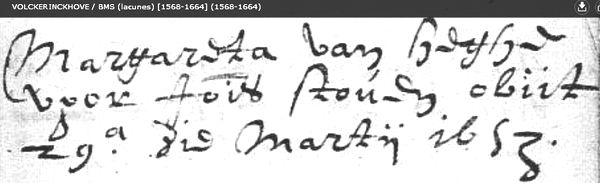 VOLCKERINCKHOVE / BMS (lacunes) [1568-1664] (1568-1664)
Margareta van heghe
voor stouen obiit
29.a die Martij 1653.